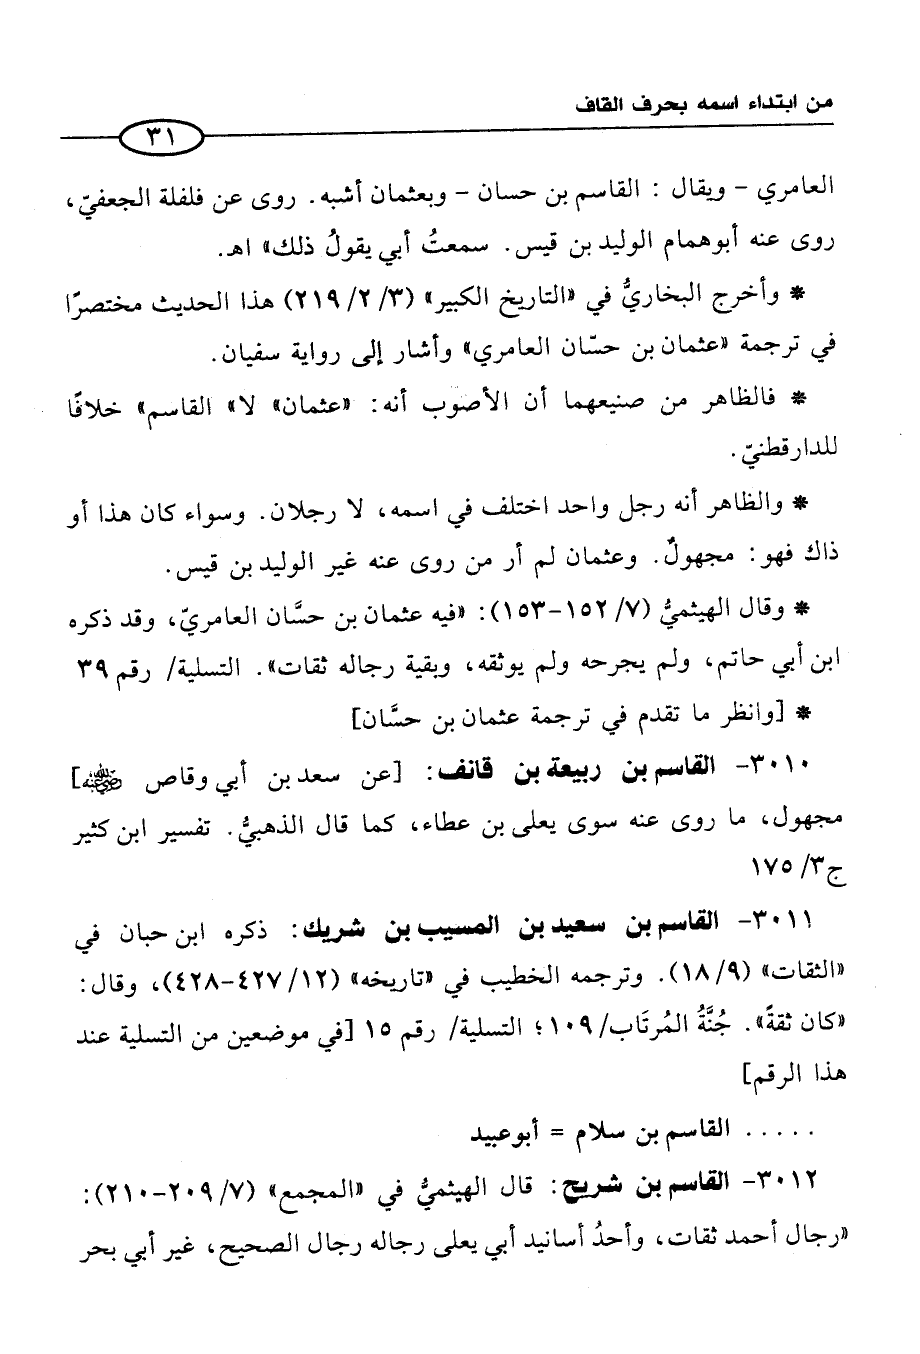 من ابتداء اسمه بحرف القاف
٣١
العامري - ويقال : القاسم بن حسان - وبعثمان أشبه. روى عن فلفلة الجعفيّ،
روى عنه أبوهمام الوليد بن قيس. سمعتُ أبي يقولُ ذلك» اهـ.
* وأخرج البخاريُّ في «التاريخ الكبير» (٣/ ٢/ ٢١٩) هذا الحديث مختصرًا
في ترجمة «عثمان بن حسّان العامري» وأشار إلى رواية سفيان.
* فالظاهر من صنيعهما أن الأصوب أنه: «عثمان» لا» القاسم» خلافًا
للدارقطنيّ.
* والظاهر أنه رجل واحد اختلف في اسمه، لا رجلان. وسواء كان هذا أو
ذاك فهو: مجهولٌ. وعثمان لم أر من روى عنه غير الوليد بن قيس.
* وقال الهيثميُّ (٧/ ١٥٢-١٥٣): «فيه عثمان بن حسَّان العامريّ، وقد ذكره
ابن أبي حاتم، ولم يجرحه ولم يوثقه، وبقية رجاله ثقات». التسلية/ رقم ٣٩
* [وانظر ما تقدم في ترجمة عثمان بن حسَّان]
٣٠١٠- القاسم بن ربيعة بن قانف: [عن سعد بن أبي وقاص رضي الله عنه]
مجهول، ما روى عنه سوى يعلى بن عطاء، كما قال الذهبيُّ. تفسير ابن كثير
ج٣/ ١٧٥
٣٠١١- القاسم بن سعيد بن المسيب بن شريك: ذكره ابن حبان في
«الثقات» (٩/ ١٨). وترجمه الخطيب في «تاريخه» (١٢/ ٤٢٧-٤٢٨)، وقال:
«كان ثقةً». جُنَّةُ المُرتَاب/ ١٠٩؛ التسلية/ رقم ١٥ [في موضعين من التسلية عند
هذا الرقم]
..... القاسم بن سلام = أبوعبيد
٣٠١٢- القاسم بن شريح: قال الهيثميُّ في «المجمع» (٧/ ٢٠٩-٢١٠):
«رجال أحمد ثقات، وأحدُ أسانيد أبي يعلى رجاله رجال الصحيح، غير أبي بحر